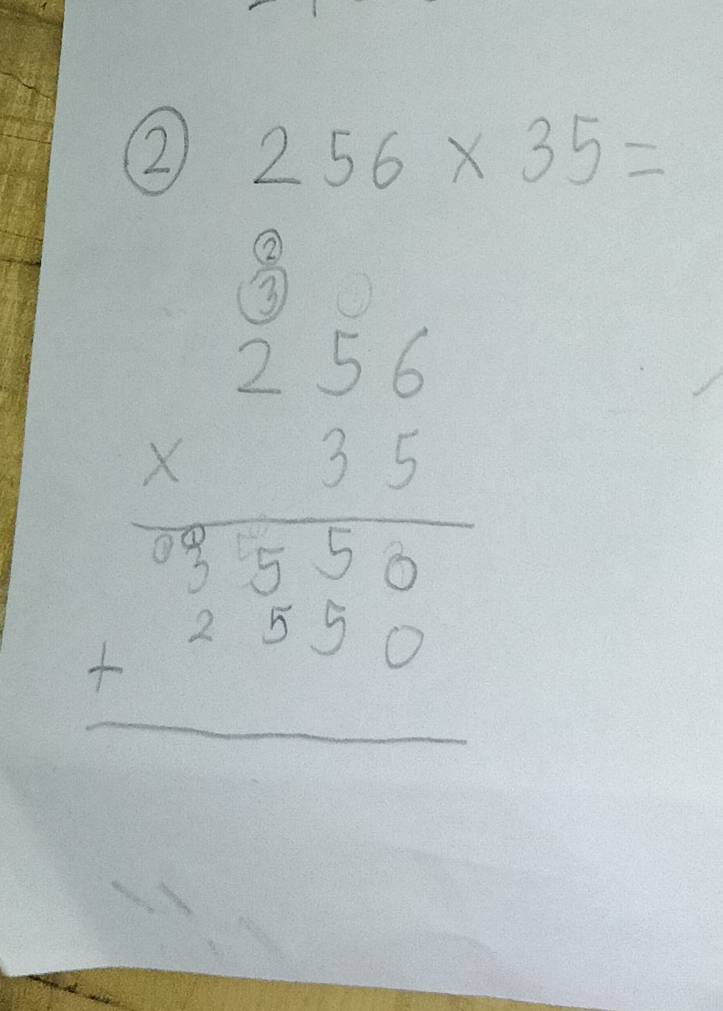 ② 256 × 35 =
②
③
256
× 35
3550
+ 2550